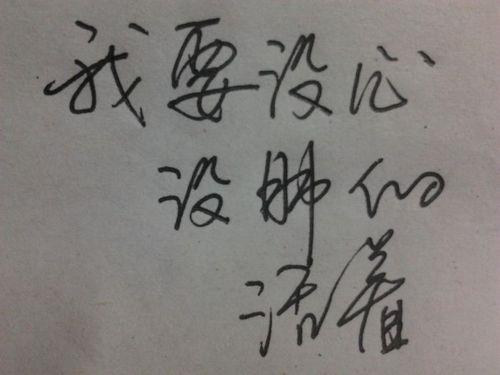 我要没心
没肺的
活着